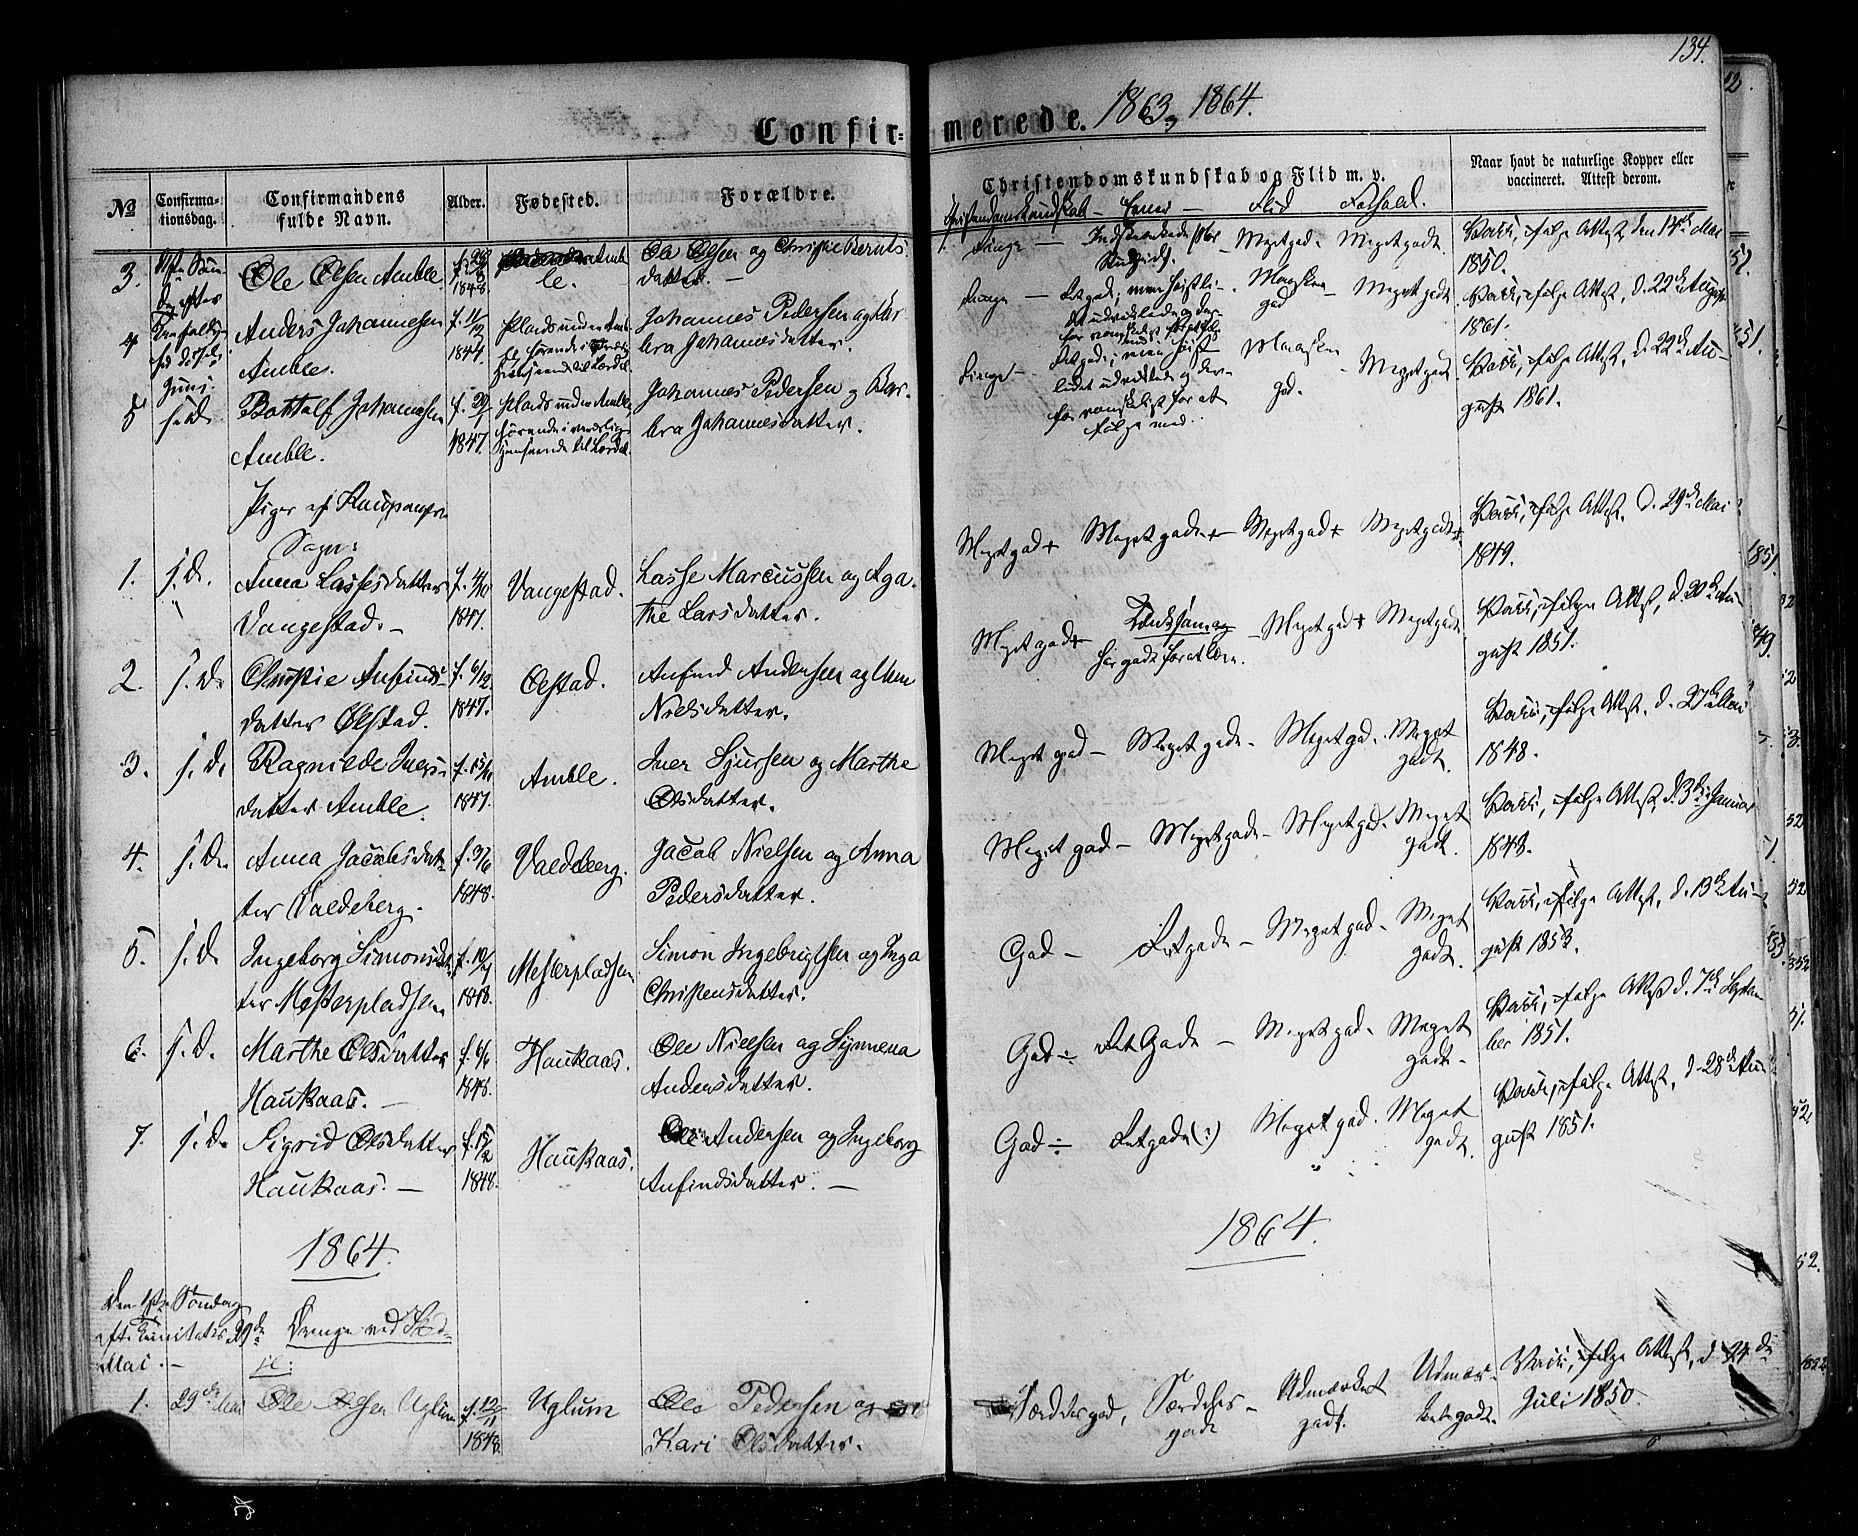 134.
Confirmerede. 1863, 1864.
No
Confirmationsdag.
Confirmandens fulde Navn.
Alder.
Fødested.
Forældre.
Christendomskundskab og Flid m. v.
Naar havt de naturlige Kopper eller vaccineret. Attest derom.
Christendomskundskab — Evner — Flid Forhold.
3.
Ole Olsen Amble
1848
Ole Olsen og Christie Bernts-
datter. —
Meget god. Meget godt
Vacc, ifølge Attest, den 14de Mai
1850.
4
Anders Johannesen
Amble.
f. 11/2
1844.
Plads under Am-
Johannes Pedersen og Bar-
bra Johannesdatter.
Ringe —
Maaskee
god — Meget godt
Vacc, ifølge Attest, d. 22de August
1861.
5
s. D.
Bottolf Johannesen
Amble.
1847.
Plads under Amble
Johannes Pedersen og Bar-
bra Johannesdatter.
Ringe —
Maaskee
god. — Meget godt
for vanskeligt for at
følge med.
Vacc, ifølge Attest, d. 22de Au-
gust 1861.
Piger af Kaupanger
Sogn:
1. s. D.
Anna Lassesdatter
Vangestad. —
1847.
Vangestad.
Lasse Marcussen og Aga-
the Larsdatter.
Meget god + Meget gode + Meget god + Meget godt +
Vacc, ifølge Attest, d. 29de Mai
1849.
2. s. D.
Christie Anfinds-
datter Ølstad.
f. 6/12
1847.
Ølstad.
Anfind Andersen og Unni
Nielsdatter.
Meget god +
Tænksom og
har godt for at lære.
Meget god + Meget godt
Vacc, ifølge Attest, d. 20de Au-
gust 1851.
3. s. D.
Ragnilde Ivers-
datter Amble.
1847.
Amble.
Iver Sjursen og Marthe
Olsdatter.
Meget god — Meget gode. Meget god. Meget
godt.
Vacc, ifølge Attest, d. 27de Mai
1848.
4. s. D.
Anna Jacobsdat-
ter Valdeberg.
f. 3/6
1848.
Valdeberg.
Jacob Nielsen og Anna
Pedersdatter.
Meget god — Meget gode — Meget god. Meget
godt.
Vacc, ifølge Attest, d. 3de Januar
1848.
5. s. D.
Ingeborg Simonsdat-
ter Mesterpladsen
1848.
Mesterpladsen
Simon Ingebrigtsen og Inga
Christensdatter.
God — Retgode — Meget god. Meget
godt.
Vacc, ifølge Attest, d. 13de Au-
gust 1853.
6. s. D.
Marthe Olsdatter
Haukaas. —
1848.
Haukaas.
Ole Nielsen og Synneva
Andersdatter.
God ÷ Ret Gode — Meget god. Meget
godt.
Vacc, ifølge Attest d. 7de Septem-
ber 1851.
7. s. D.
Sigrid Olsdatter
Haukaas. —
f. 15/2
1848.
Haukaas.
Ole Andersen og Ingeborg
Anfindsdatter. —
God ÷ Retgode (÷) Meget god. Meget
godt.
Vacc, ifølge Attest, d. 28de Au-
gust 1851.
1864. 1864.
Den 1ste Søndag
eft. Trinitatis 29de
Mai. —
Drenge ved Stedje:
1. 29de Mai
Ole Olsen Uglum
f. 12/1
1848.
Uglum
Ole Pedersen og
Kari Olsdatter.
Særdeles god, Særdeles
gode Udmærket
godt. Udmær-
ket godt.
Vacc, ifølge Attest, d 24de
Juli 1850.